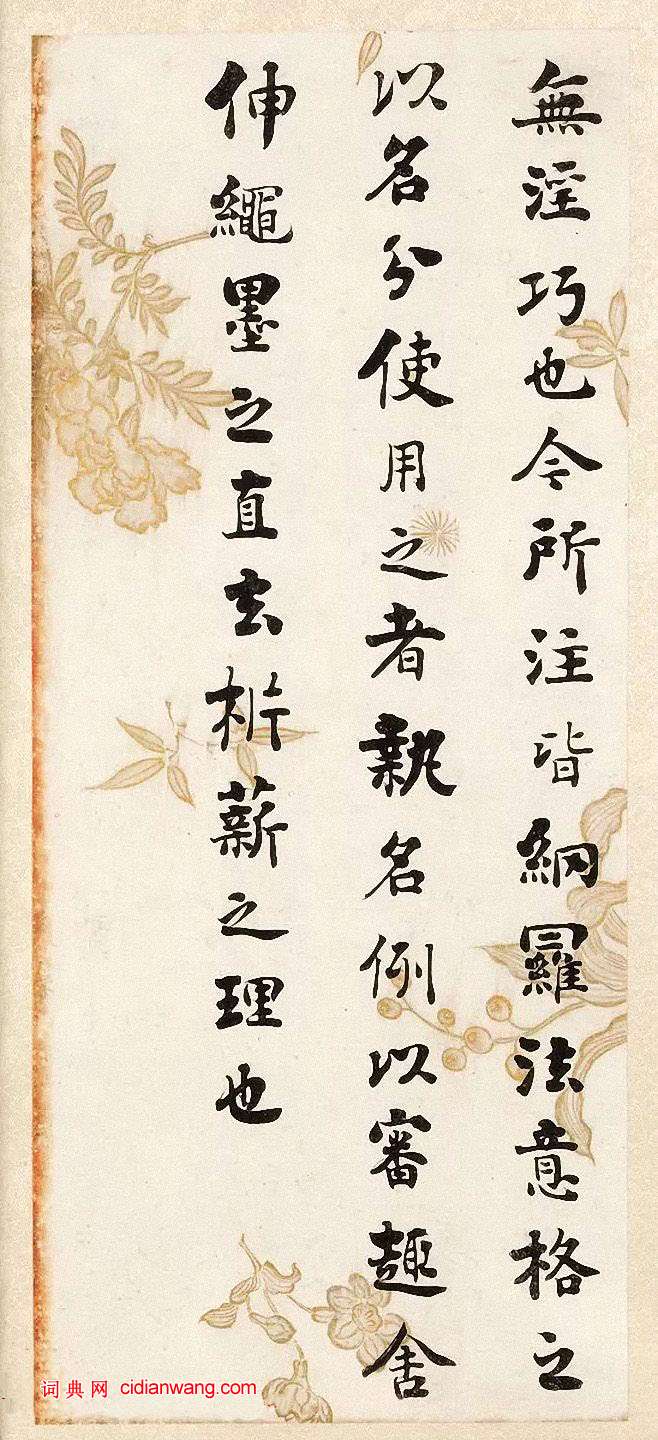 無淫巧也今所注皆網羅法意格之
以名分使用之者執名例以審趣舍
伸繩墨之直去析薪之理也
词典网 cidianwang.com